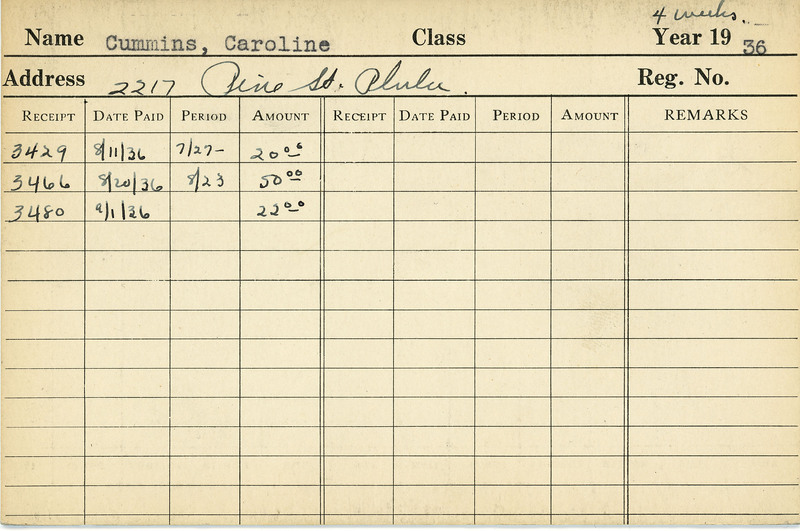 4 weeks.
Name Cummins, Caroline Class Year 19 36
Address 2217 Pine St. Phila. Reg. No.
RECEIPT DATE PAID PERIOD AMOUNT RECEIPT DATE PAID PERIOD AMOUNT REMARKS
3429 8/11/36 7/27- 20 00
3466 8/20/36 8/23 50 00
3480 9/1/36 22 00